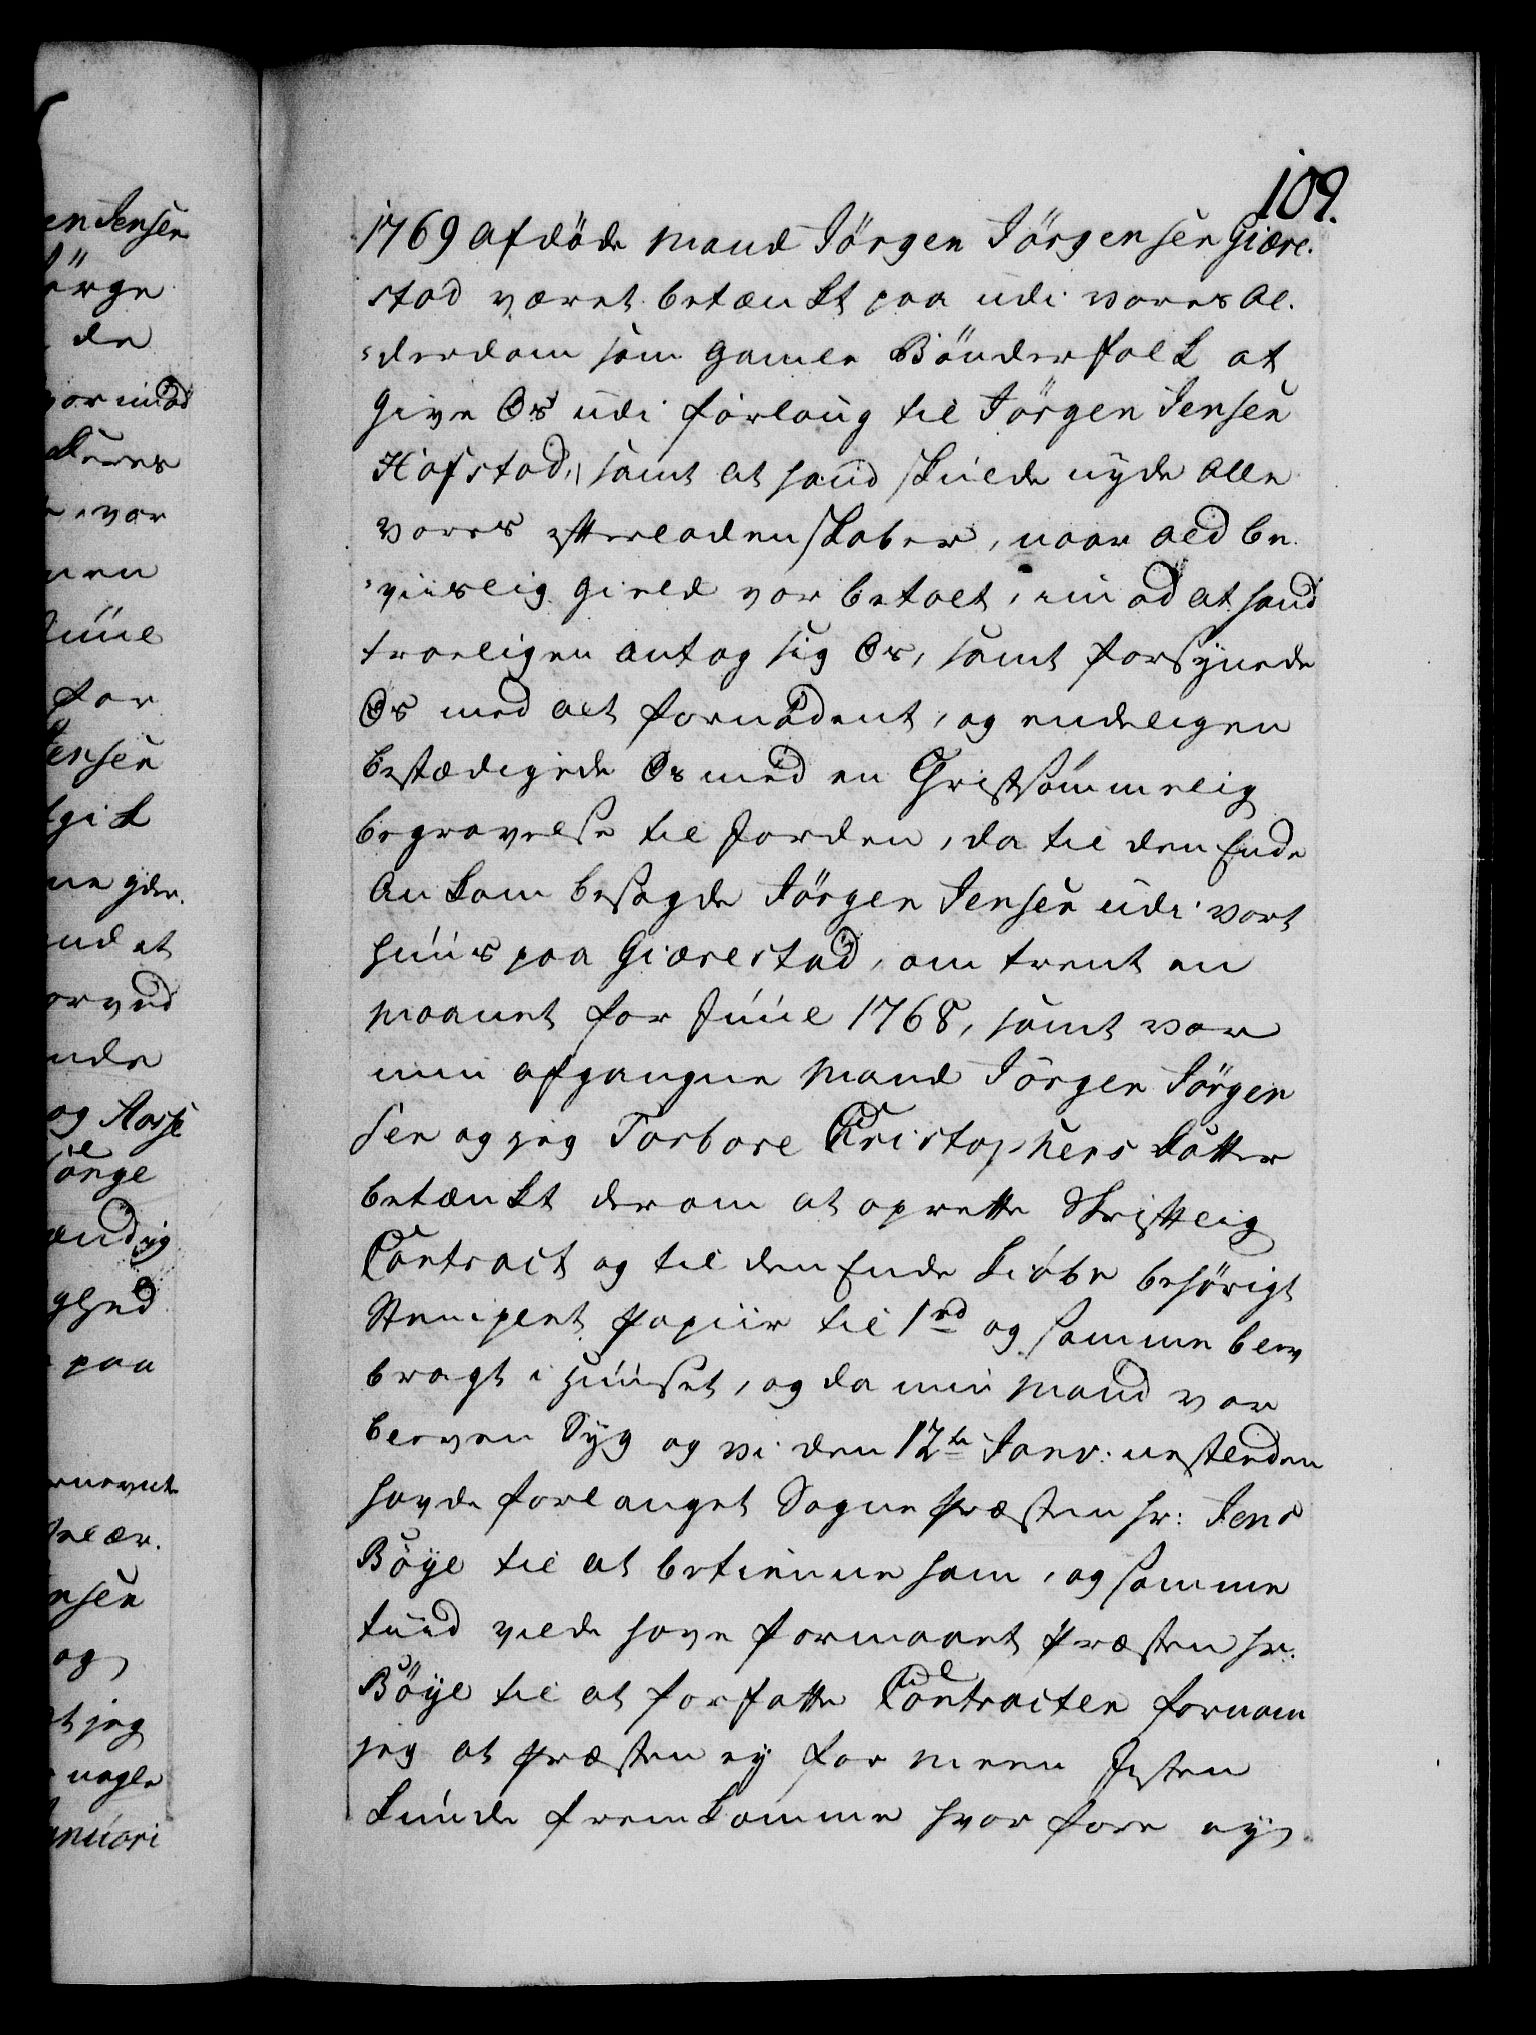 109.
1769 afdöde Mand Jörgen Jörgensen Giære-
stad været betænkt paa udi vores Al-
derdom som gamle Bönderfolk at
give Os udi forlaug til Jörgen Jensen
Hofstad, samt at hand skulde nyde alle
vores efterladenskaber, naar ald be-
viislig Gield var betalt, imod at hand
troeligen antog sig Os, samt forsynede
Os med alt fornödent, og endeligen
bestædigede Os med en Christsömmelig
begravelse til Jorden, da til den Ende
Ankom besagde Jörgen Jensen udi vort
huus paa Giærestad, omtrent en
Maanet for Juul 1768, samt var
min afgangne Mand Jörgen Jörgen
sen og jeg Torbore Christophers Datter
betænkt derom at oprette Skriftlig
Contract og til den Ende kiöbe behörigt
Stemplet Papiir til 1 rd og samme blev
bragt i huuset, og da min Mand var
bleven Syg og vi den 12te Janv: nestleden
havde forlanget Sogne Præsten hr: Jens
Böye til at betienne ham, og samme
tiid vilde have formaaet Præsten hr:
Böye til at forfatte Contracten fornam
jeg at Præsten ey for Meen Isten
kunde fremkomme hvorfore ey
en Jensen
de
for
Jensen
og
paa
jeg